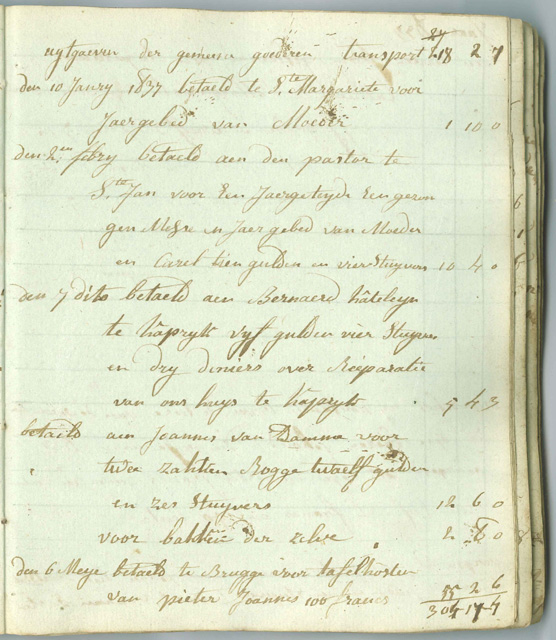 uytgaeven der gemeene goederen transport 218 2 7
den 10 Janry 1837 betaeld te Ste Margariete voor
Jaergebed van Moeder 1 10 0
den 2en febry betaeld aen den pastor te
Ste Jan voor Een Jaergetyde Een gezon
gen Messe en Jaergebed van Moeder
en Carel tien gulden en vier Stuyvers 10 4 0
den 7 dito betaeld aen Bernaerd
te Caprijk vyf gulden vier Stuyvers
en dry deniers over Reparatie
van ons huys te Caprijk 5 4 3
betaeld aen Joannes van Damme voor
twee zakken Rogge twaelf gulden
en zes Stuyvers 12 6 0
voor bakken der zelve 2 8 0
den 6 Meye betaeld te Brugge voor tafelkosten
van pieter Joannes 100 francs 55 2 6